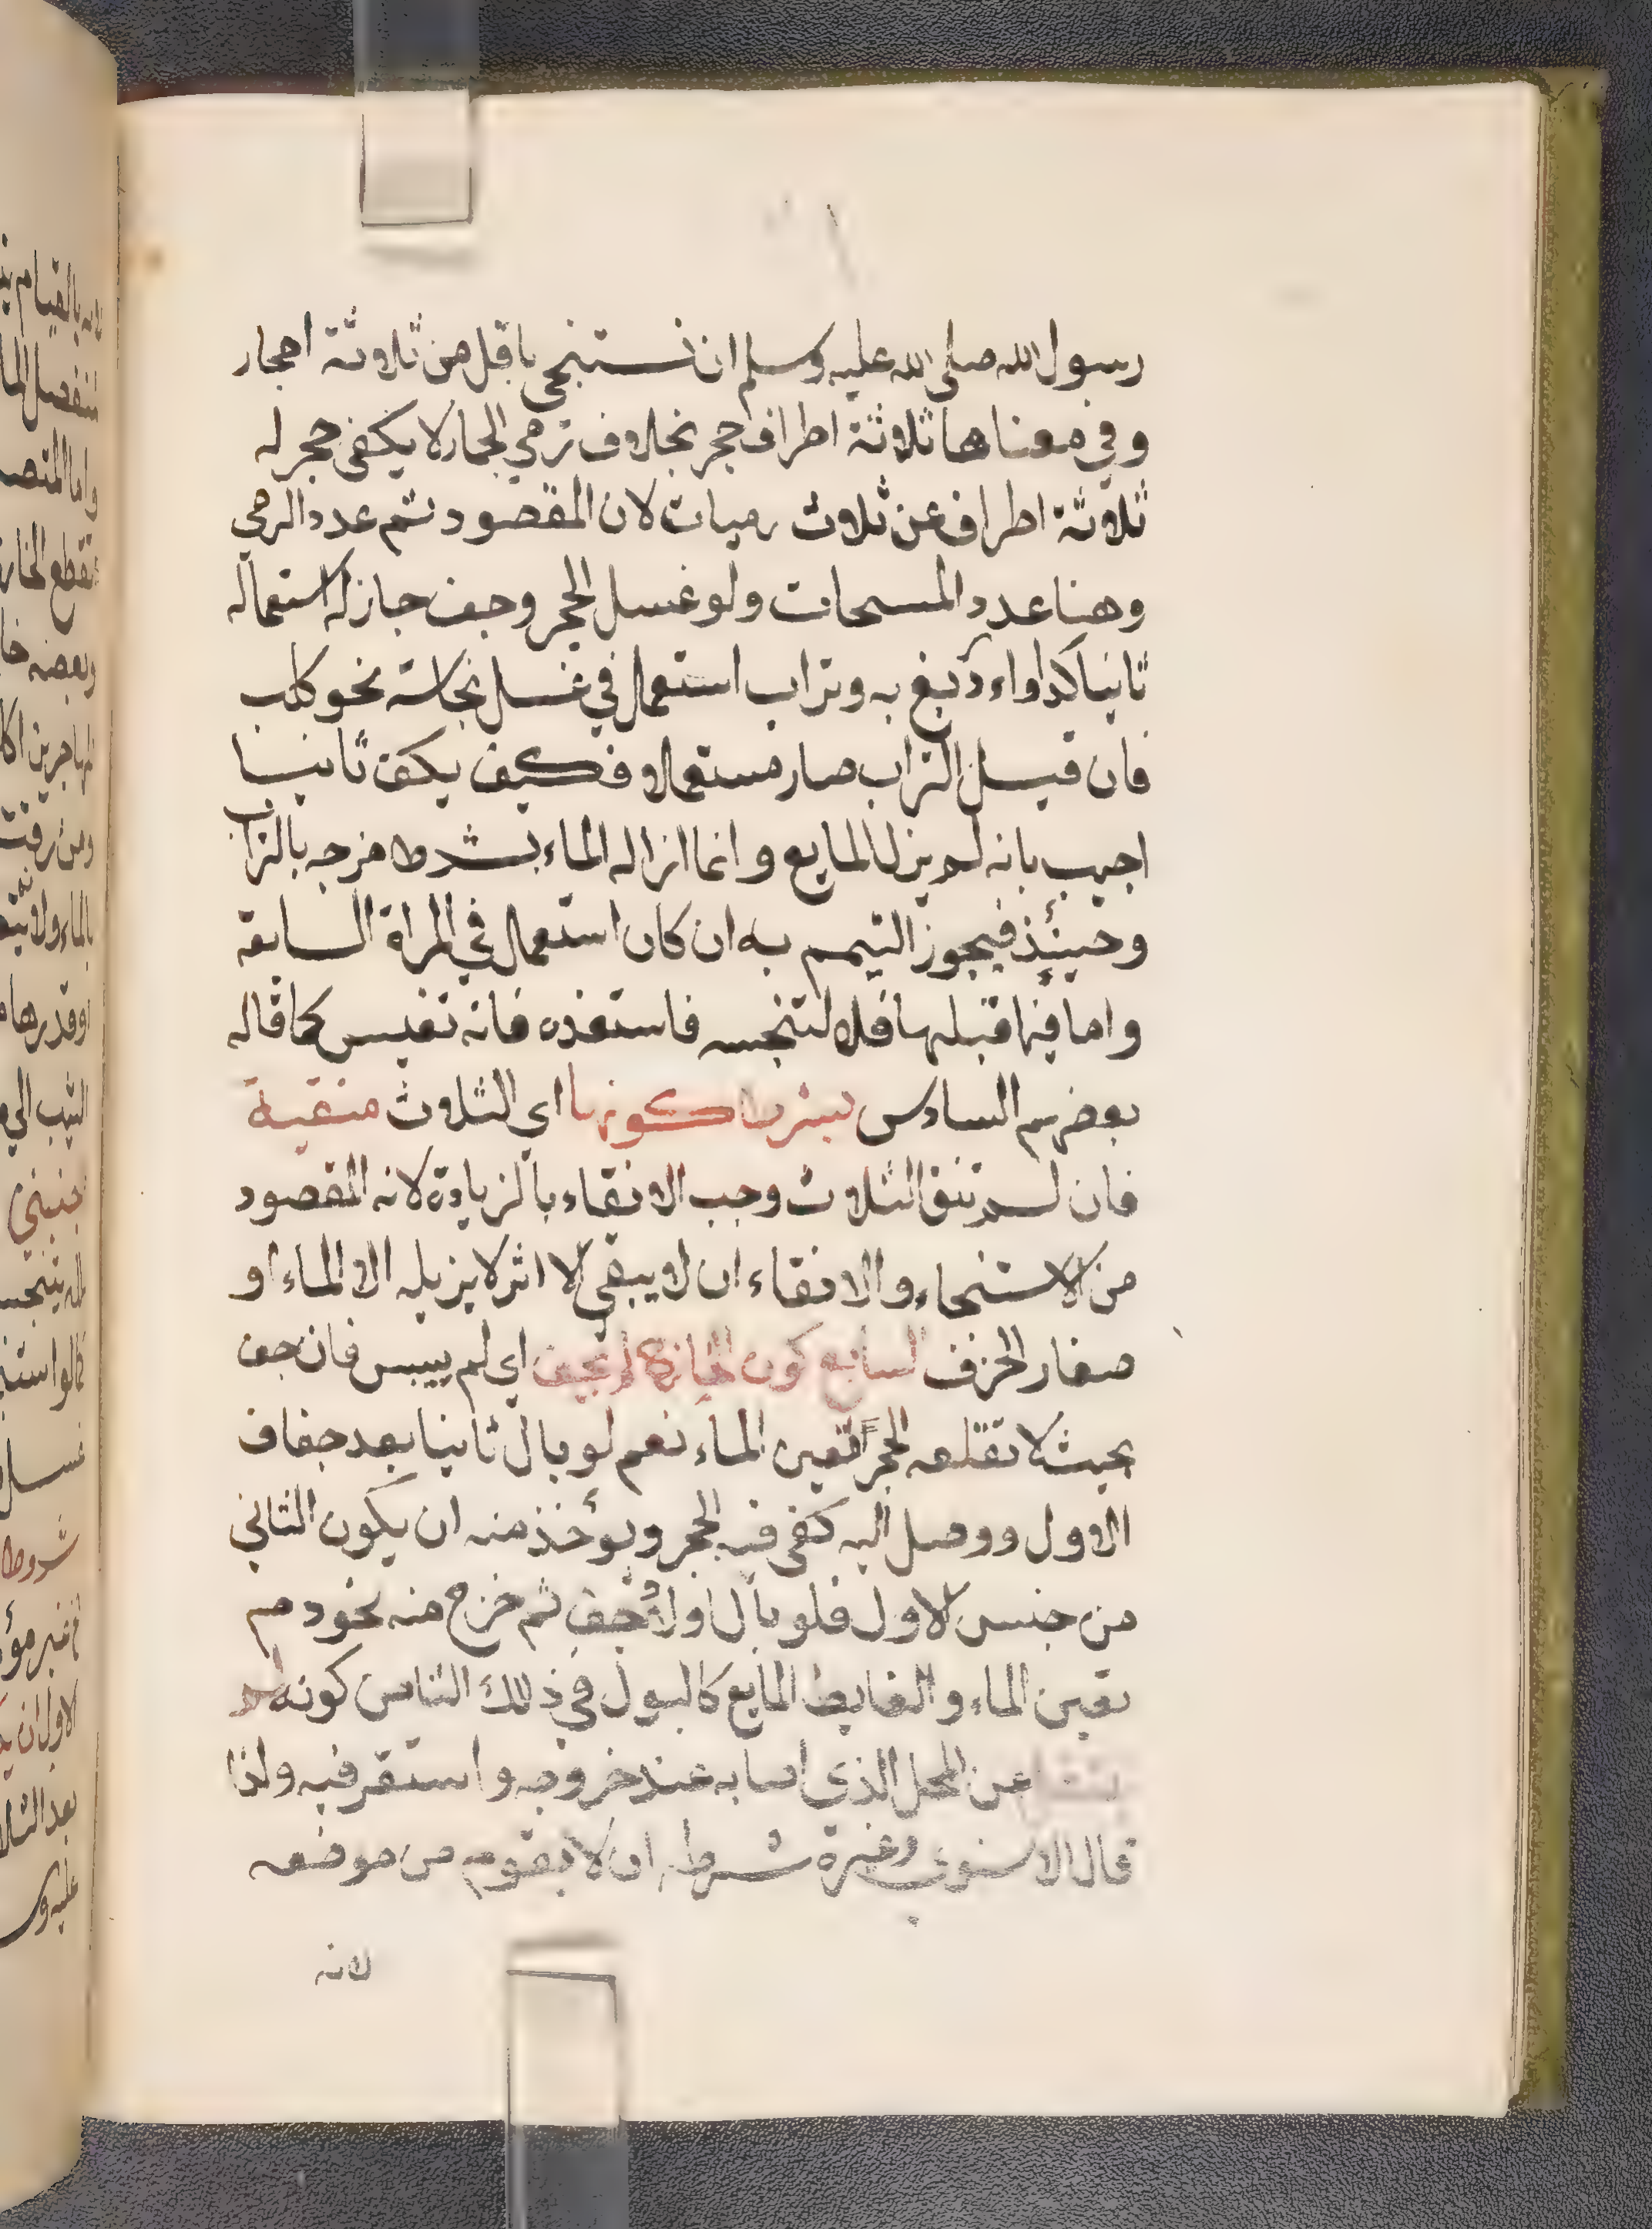 رسول الله صلى الله عليه وسلم ان نستنجي باقل من ثلاثة احجار
وفي معناها ثلاثة اطراف حجر بخلاف ترمي الجمار لا يكفي حجر له
ثلاثة اطراف عن ثلاث رميات لان المقصود ثم عدد الرمي
وهنا عدد المسحات ولو غسل الحجر وجف جاز له استعماله
ثانيا كدواء دبغ به وتراب استعمل في غسل نجاسة نحو كلب
فان قيل التراب صار مستعملا فكيف يكف ثانيا
اجيب بانه لم يزل المايع وانما ازاله الماء بشرط مزجه بالتراب
وحينئذ فيجوز التيمم به ان كان استعمال في المراة السابعة
واما فيما قبلها فلا لتنجسه فاستفده فانه نفيس كما قاله
بعضهم السادس بشرط كونها اي الثلاث منقية
فان لم تنق الثلاث وجب الانقاء بالزيادة لانه المقصود
من الاستنجاء والانقاء ان لا يبقى الا اثر لا يزيله الا الماء او
صغار الخزف السابع كون الخارج لم يجف اي لم ييبس فان جف
بحيث لا تقلعه الحجر تعين الماء نعم لو بال ثانيا بعد جفاف
الاول ووصل اليه كفى فيه الحجر ويؤخذ منه ان يكون الثاني
من جنس الاول فلو بال اولا وجف ثم خرج منه نحو دم
تعين الماء والغايط المايع كالبول في ذلك الثامن كونه لم
ينتقل عن المحل الذي اصابه عند خروجه واستقر فيه ولذا
قال الاسنوي وغيره شرطه ان لا يقوم من موضعه
لانه